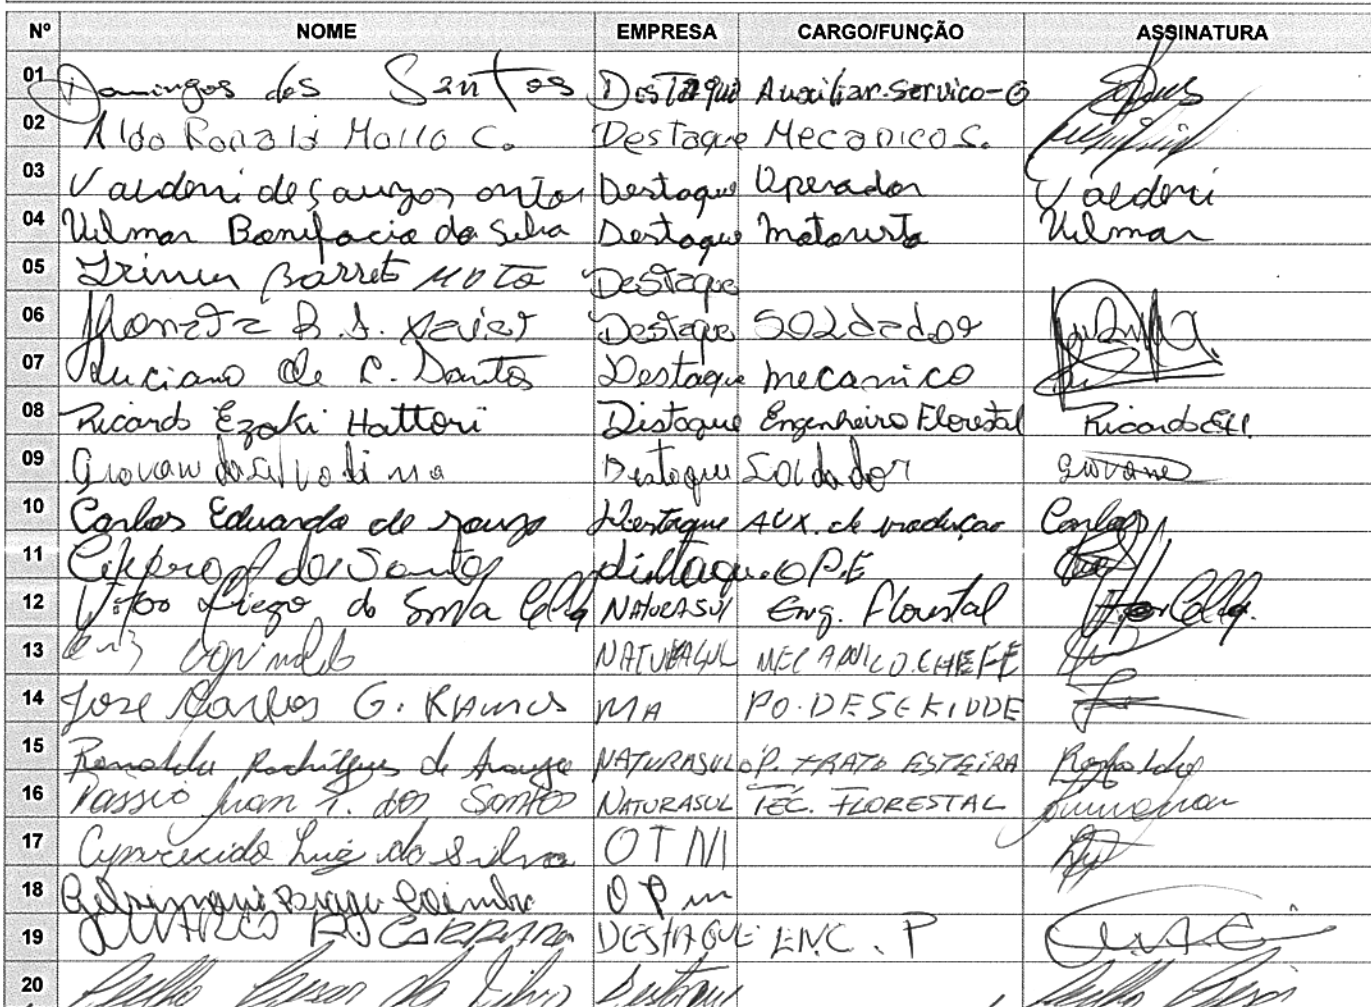 Nº NOME EMPRESA CARGO/FUNÇÃO ASSINATURA
01 Domingos dos Santos Destaque Auxiliar-Servico-G
02 Aldo Ronald C. Destaque Mecanico S.
03 Valdeni de Destaque Operador Valdeni
04 Vilmar Bonifacio da Silva Destaque Motorista Vilmar
05 Barreto Mota Destaque
06 Jhonata R. S. Xavier Destaque Soldador
07 Luciano de C. Santos Destaque mecanico
08 Ricardo Ezaki Hattori Distaque Engenheiro Florestal Ricardo
09 Giovan da Silva Lima Destaque Soldador Giovane
10 Carlos Eduardo de Souza Destaque AUX. de producao Carlos
11 dos Santos distaque O P.E
12 Vitor Diego do NATURASUL Eng. Florestal
13 Luiz NATURASUL MECANICO.CHEFE
14 Jose Carlos G. Ramos MA PO.DESEKIDDE
15 Ronaldo Rodrigues de Araujo NATURASUL OP. TRATO ESTEIRA Ronaldo
16 Juan T. dos Santos NATURASUL TÉC. FLORESTAL
17 Aparecido Luiz da Silva OTM
18 Braga Coimbra O P m
19 DESTAQUE ENC. P
20 da Silva Destaque